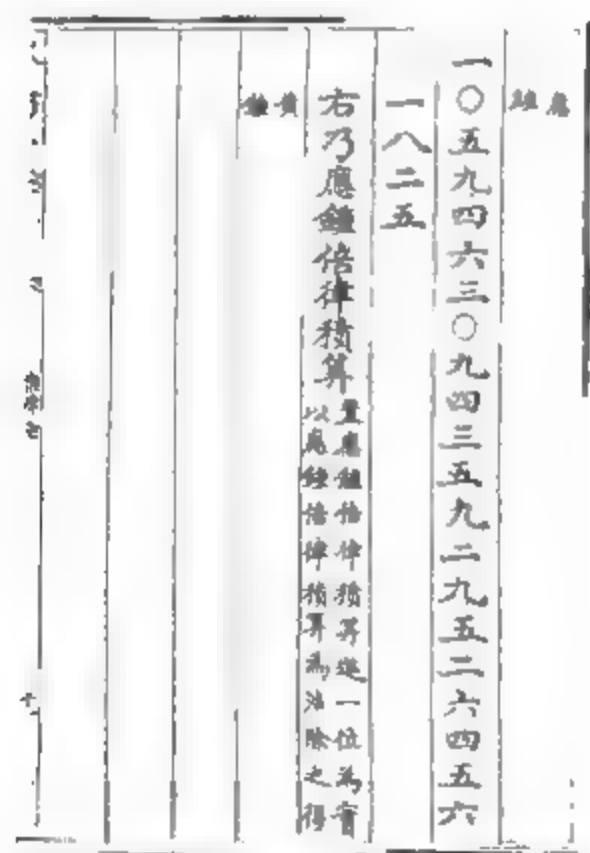 應鐘
一〇五九四六三〇九四三五九二九五二六四五六
一八二五
右乃應鐘倍律積算
置應鐘倍律積算進一位為實
以應鐘倍律積算為法除之得
黃鐘